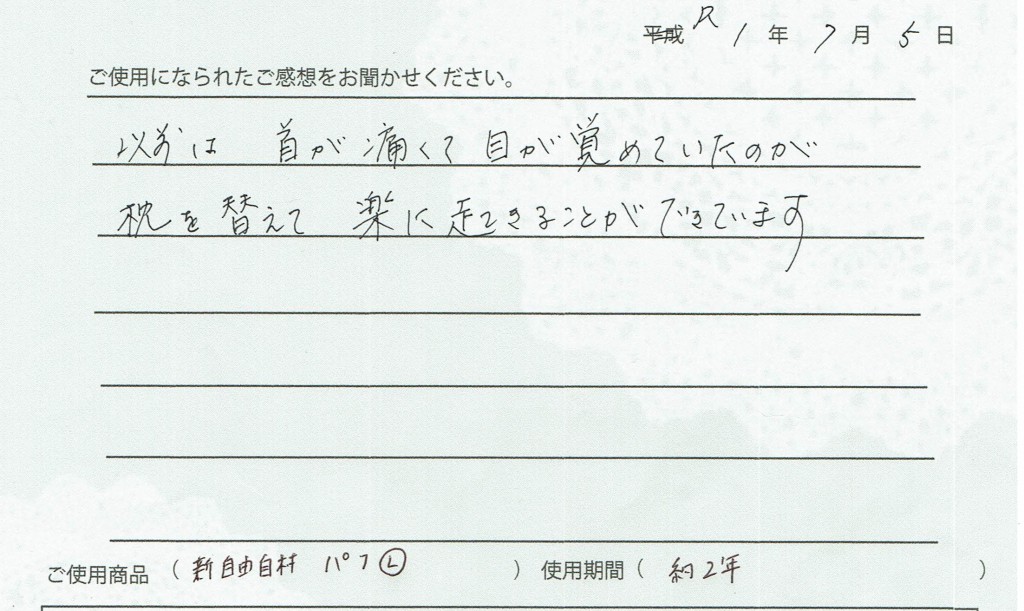 平成 R 1年 7月 5日
ご使用になられたご感想をお聞かせください。
以前は 首が痛くて目が覚めていたのが
枕を替えて 楽に起きることができています
ご使用商品 ( 新自由自材 パフ Ⓛ ) 使用期間 ( 約2年 )